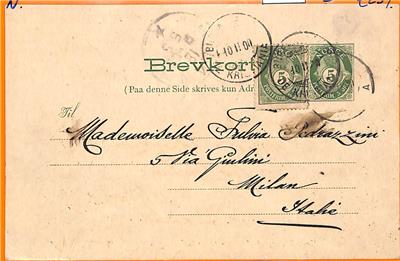 N.
Brevkort
(Paa denne Side skrives kun Adr
5
5
Til
Mademoiselle Fulvia Pedrazzini
5 Via Giulini
Milan
Italie